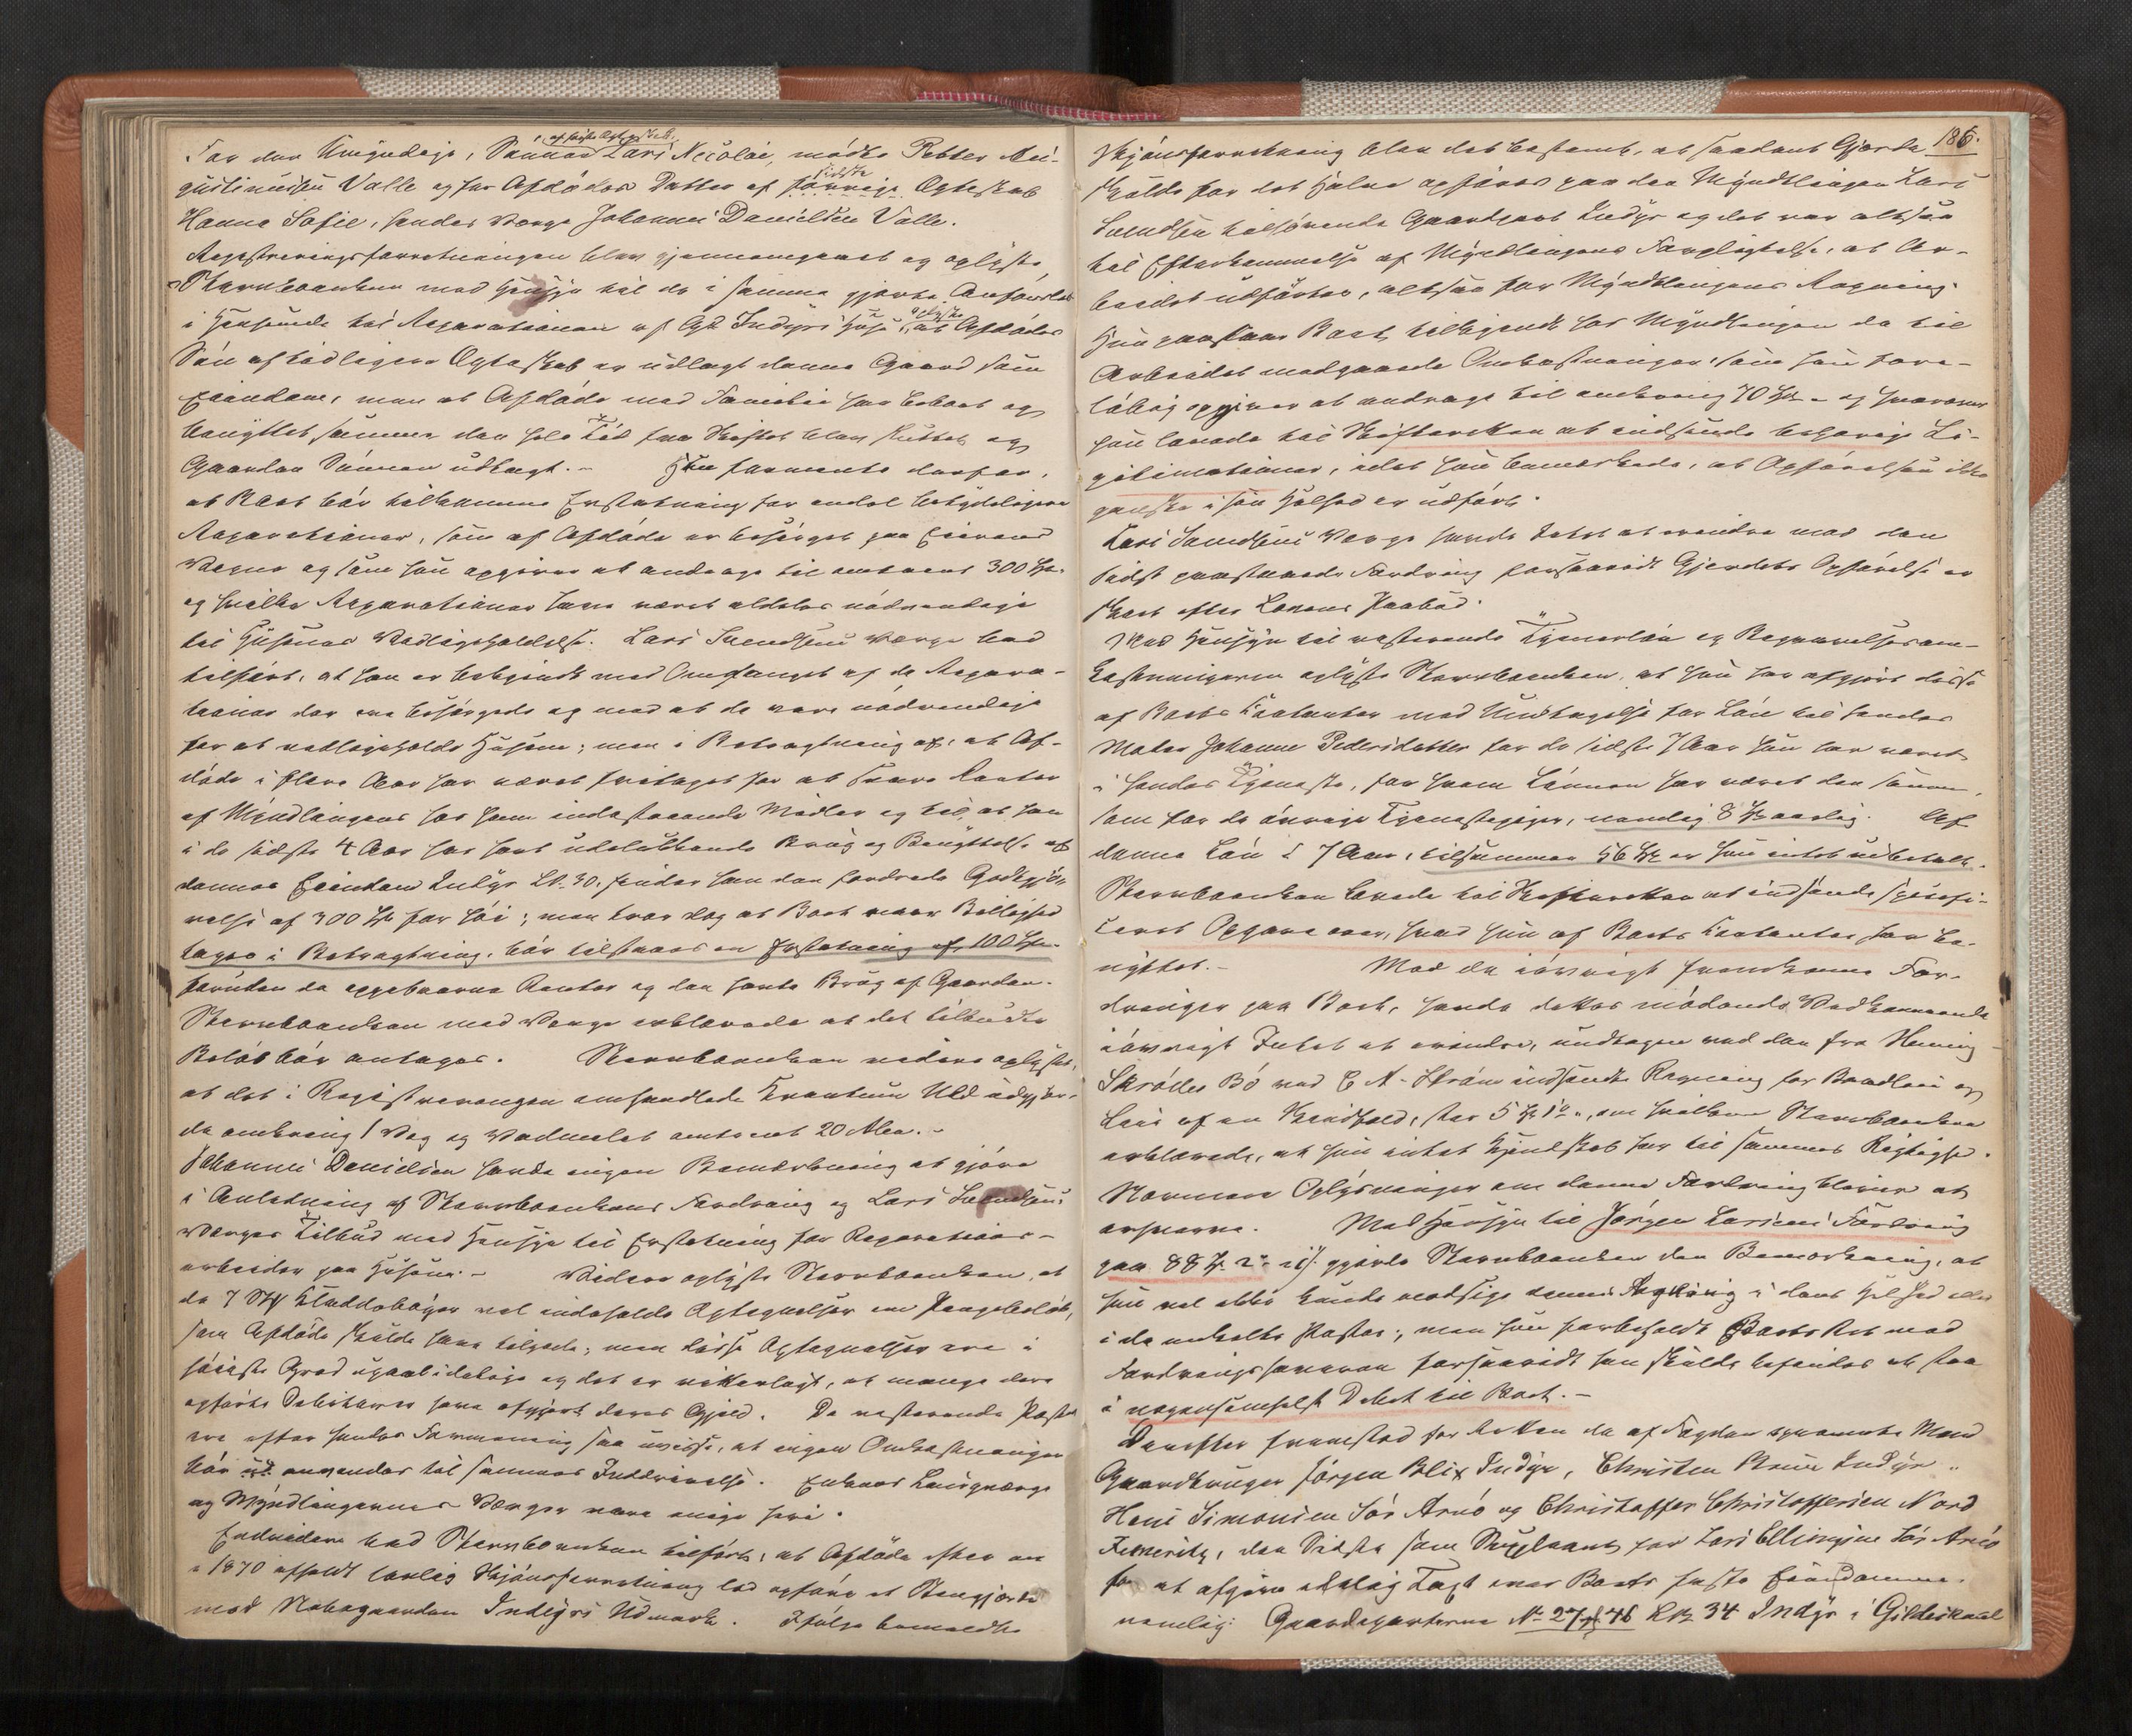 af første Ægteskab
For den Umyndige, Sønnen Lars Nicolai, mødte Petter Au-
gustinussen Valle og for Afdødes Datter af sidste Ægteskab
Hanna Sofie, hendes Værge Johannes Danielsen Valle.
Registreringsforretningen blev gjennemgaaet og oplyste
Stervboenken med Hensyn til de i samme gjorte Anførsler
i Henseende til Reparationen af Gd. Indyrs Huse, at Afdødes
Søn af tidligere Ægteskab er udlagt denne Gaard som
Eiendom, men at Afdøde med Familie har beboet og
benyttet samme den hele Tid fra Skiftet blev sluttet og
Gaarden Sønnen udlagt. - Hun formente derfor,
at Boet bør tilkomme Erstatning for endel betydeligere
Reparationer, som af Afdøde er besørget paa Eierens
Vegne og som hun opgiver at andrage til omtrent 300 Spd.
og hvilke Reparationer have været aldeles nødvendige
til Husenes Vedligeholdelse. Lars Svendsens Værge bad
tilført, at han er bekjendt med Omfanget af de Repara-
tioner der ere besørgede og med at de vare nødvendige
for at vedligeholde Husene; men i Betragtning af, at Af-
døde i flere Aar har været fritaget for at svare Renter
af Myndlingens hos ham indestaaende Midler og til, at han
i de sidste 4 Aar har havt udelukkende Brug og Benyttelse af
dennes Eiendom Indyr Lb. 30, finder han den fordrede Godtgjø-
relse af 300 Spd. for høi; men tror dog at Boet naar Billighed
tages i Betragtning, bør tilstaaes en Erstatning af 100 Spd.
foruden de oppebaarne Renter og den havte Brug af Gaarden.
Stervboenken med Værge erklærede at det tilbudte
Beløb bør antages. Stervboenken videre oplyste,
at det i Registreringen omhandlede Kvantum Uld udgjør-
de omkring 1 Vog og Vadmelet omtrent 20 Alen. -
Johannes Danielsen havde ingen Bemærkning at gjøre
i Anledning af Stervboenkens Fordring og Lars Svendsens
Værges Tilbud med Hensyn til Erstatning for Reparations-
arbeider paa Husene. - Videre oplyste Stervboenken, at
de 7 Stk Kladdebøger vel indeholde Optegnelser om Pengebeløb,
som Afdøde skulde have tilgode; men disse Optegnelser ere i
høieste Grad upaalidelige og det er vitterligt, at mange deri
opførte Debitorer have afgjort deres Gjæld. De resterende Poster
ere efter hendes Formening saa uvisse, at ingen Omkostninger
bør anvendes til sammes Inddrivelse. Enkens Laugværge
og Myndlingernes Værger vare enige heri.
Endvidere bad Stervboenken tilført, at Afdøde efter en
i 1870 afholdt lovlig Skjønsforretning lod opføre et Steengjerde
mod Nabogaarden Indyrs Udmark. Ifølge bemeldte
186.
Skjønsforretning blev det bestemt, at saadant Gjerde
skulde for det Halve opføres paa den Myndlingen Lars
Svendsen tilhørende Gaardpart Indyr og det var altsaa
til Efterkommelse af Myndlingens Forpligtelse, at Ar-
beidet udførtes, altsaa for Myndlingens Regning.
Hun paastaar Boet tilkjendt hos Myndlingen de til
Arbeidet medgaaede Omkostninger, som hun fore-
løbig opgiver at andrage til omkring 70 Spd. - og hvorom
hun lovede til Skifteretten at indsende behørige Le-
gitimationer, idet hun bemærkede, at Opførelsen ikke
ganske i sin Helhed er udført.
Lars Svendsens Værge havde Intet at erindre mod den
sidst paastaaede Fordring forsaavidt Gjerdets Opførelse er
skeet efter Lovens Paabud.
Med Hensyn til resterende Tjenerløn og Begravelsesom-
kostningerne oplyste Stervboenken, at hun har afgjort disse
af Boets Contanter med Undtagelse for Løn til hendes
Moder Johanne Pedersdatter for de sidste 7 Aar hun har været
i hendes Tjeneste, for hvem Lønnen har været den samme,
som for de øvrige Tjenestepiger, nemlig 8 Spd. aarlig. Af
denne Løn i 7 Aar, tilsammen 56 Spd. er hun intet udbetalt.
Stervboenken lovede til Skifteretten at indsende specifi-
ceret Opgave over, hvad hun af Boets Contanter har be-
nyttet. - Mod de iøvrigt fremkomne For-
dringer paa Boet, havde dettes mødende Vedkommende
iøvrigt Intet at erindre, undtagen mod den fra Henning
Skrølles Bo ved C A. Strøm indsendte Regning for Baadleie og
Leie af en stor 5 Spd. 12 s, om hvilken Stervboenken
erklærede, at hun intet Kjendskab har til sammes Rigtighed.
Nærmere Oplysninger om denne Fordring bliver at
erhverve. Med Hensyn til Jørgen Larsens Fordring
paa 88 Spd. gjorde Stervboenken den Bemærkning, at
hun vel ikke kunde modsige dennes Rigtighed i dens Helhed eller
i de enkelte Poster; men hun forbeholdt Boets Ret mod
Fordringshaveren forsaavidt han skulde befindes at staa
i nogensomhelst Debet til Boet. -
Derefter fremstod for Retten de af Fogden opnævnte Mænd
Gaardbruger Jørgen Blix Indyr, Christen Indyr
Hans Simonsen Sør Arnø og Christoffer Christoffersen Nord
Femeris, den Sidste som Suppleant for Lars Ellingsen Sør Arnø
for at afgive edelig Taxt over Boets faste Eiendomme
nemlig: Gaardeparterne No 27 & 46 Lb 34 Indyr i Gildeskaal